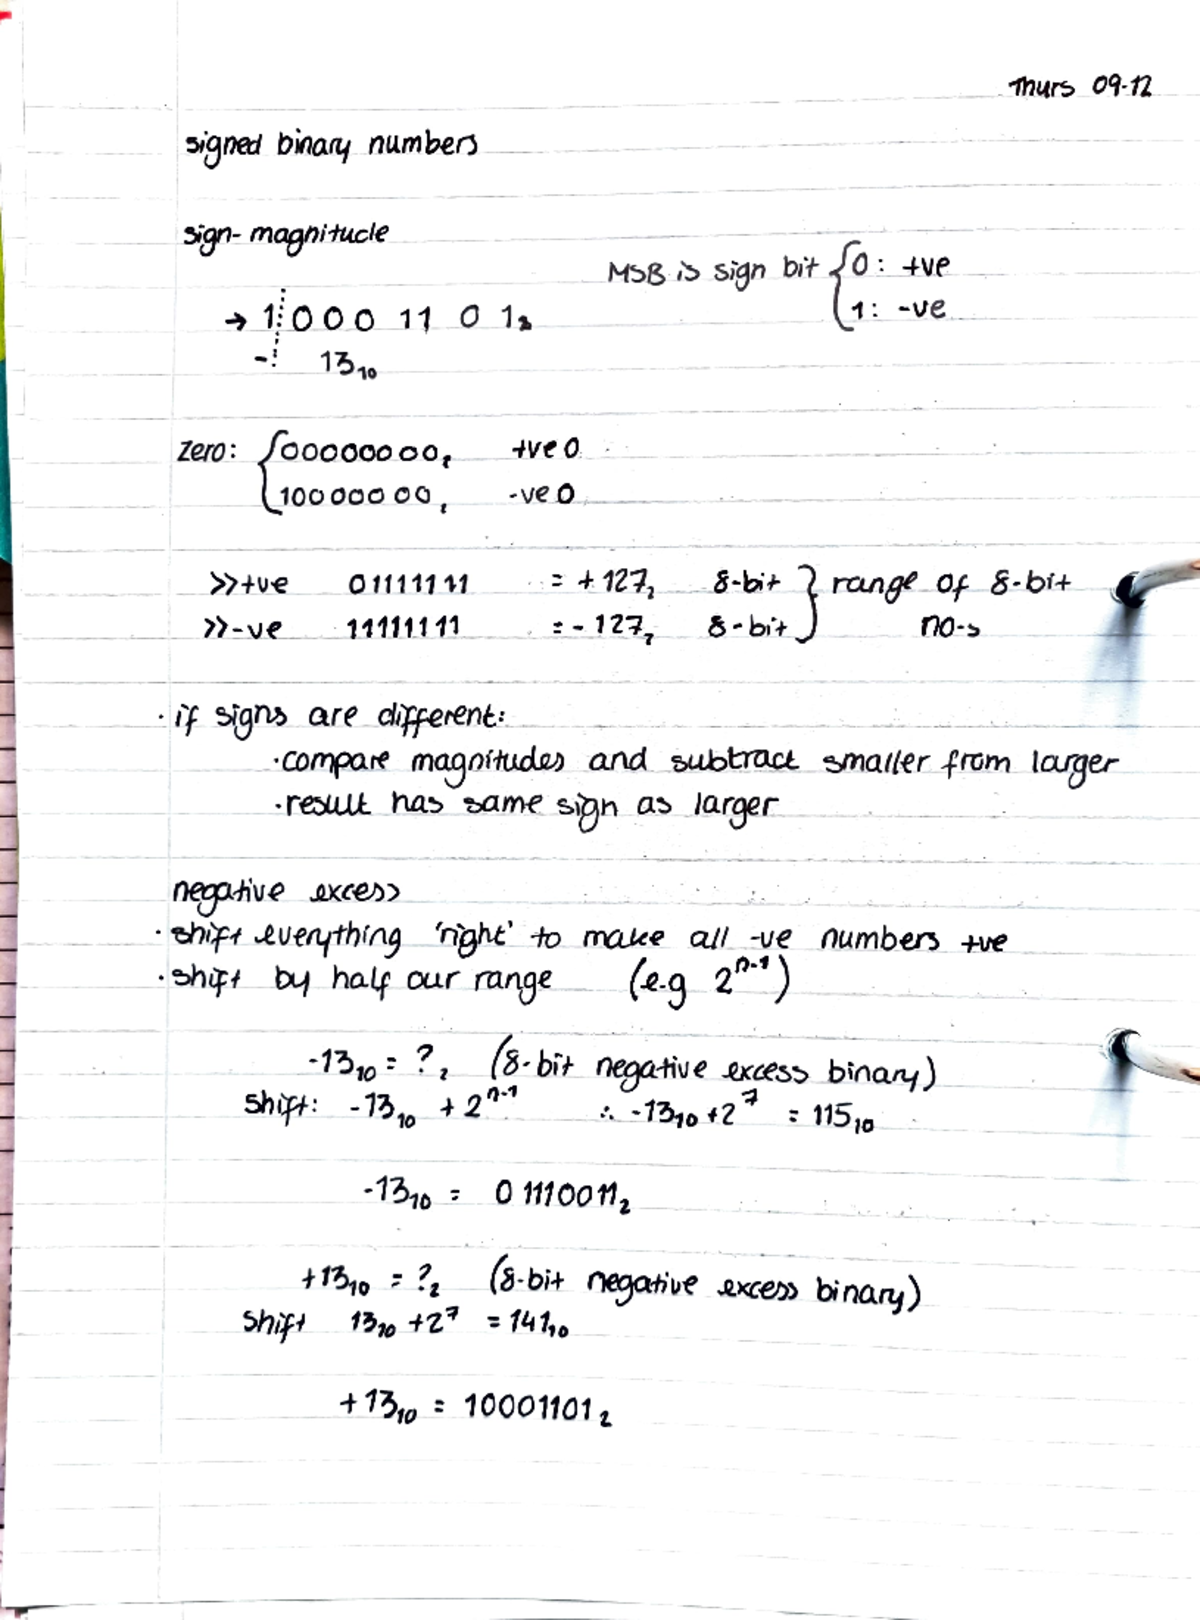 Thurs 09-12
signed binary numbers
sign-magnitude
MSB is sign bit { 0: +ve
1: -ve
→ 1 0 0 0 1 1 0 1₂
- 13₁₀
Zero: { 00000000₂ +ve 0
10000000₂ -ve 0
>>+ve 01111111 = +127₂ 8-bit } range of 8-bit
>>-ve 11111111 = -127₂ 8-bit no-s
· if signs are different:
· compare magnitudes and subtract smaller from larger
· result has same sign as larger
negative excess
· shift everything 'right' to make all -ve numbers +ve
· shift by half our range (e.g 2ⁿ⁻¹)
-13₁₀ = ?₂ (8-bit negative excess binary)
Shift: -13₁₀ + 2ⁿ⁻¹ ∴ -13₁₀ + 2⁷ = 115₁₀
-13₁₀ = 01110011₂
+13₁₀ = ?₂ (8-bit negative excess binary)
Shift 13₁₀ + 2⁷ = 141₁₀
+13₁₀ = 10001101₂